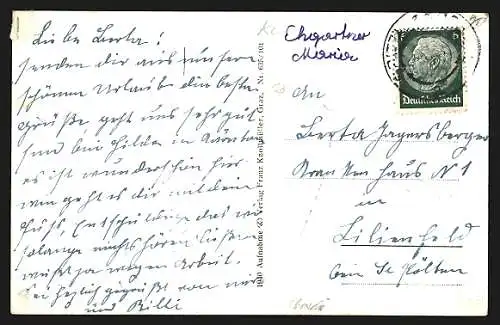 Liebe Berta!
senden dir aus unsern
schönen Urlaub die besten
Grüße geht uns sehr gut
sind bei Hilda in Kärnten
es ist wunderschön hier
wie geht es dir mit dein
Fuß, Entschuldige das wir
solange nichts hören ließen
weißt ja wegen Arbeit.
Sei herzlich gegrüßt von mir
und Billi
1940 Aufnahme u. Verlag Franz Knollmüller, Graz Nr. 635/101
Ehgartner
Maria
6
Deutsches Reich
An
Berta Jagersberger
Krankenhaus N 1
in
Lilienfeld
bein St Pölten